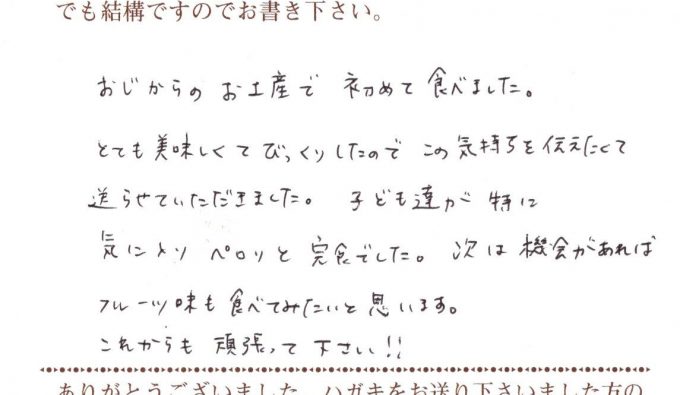 でも結構ですのでお書き下さい。
おじからの お土産で 初めて 食べました。
とても美味しくて びっくりしたので この気持ちを伝えたくて
送らせていただきました。 子ども達が 特に
気に入り ペロリと 完食でした。 次は 機会があれば
フルーツ味も 食べてみたいと思います。
これからも 頑張って 下さい!!
ありがとうございました。ハガキをお送り下さいました方の